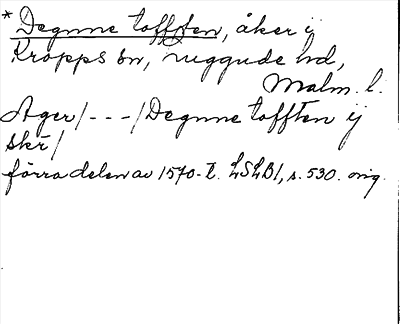 * Degnne tofften, åker i
Kropps sn, Luggude hd,
Malm. l.
Ager/---/Degnne tofften ij
skr/
förra delen av 1570-t. LSLB1, s. 530. orig.